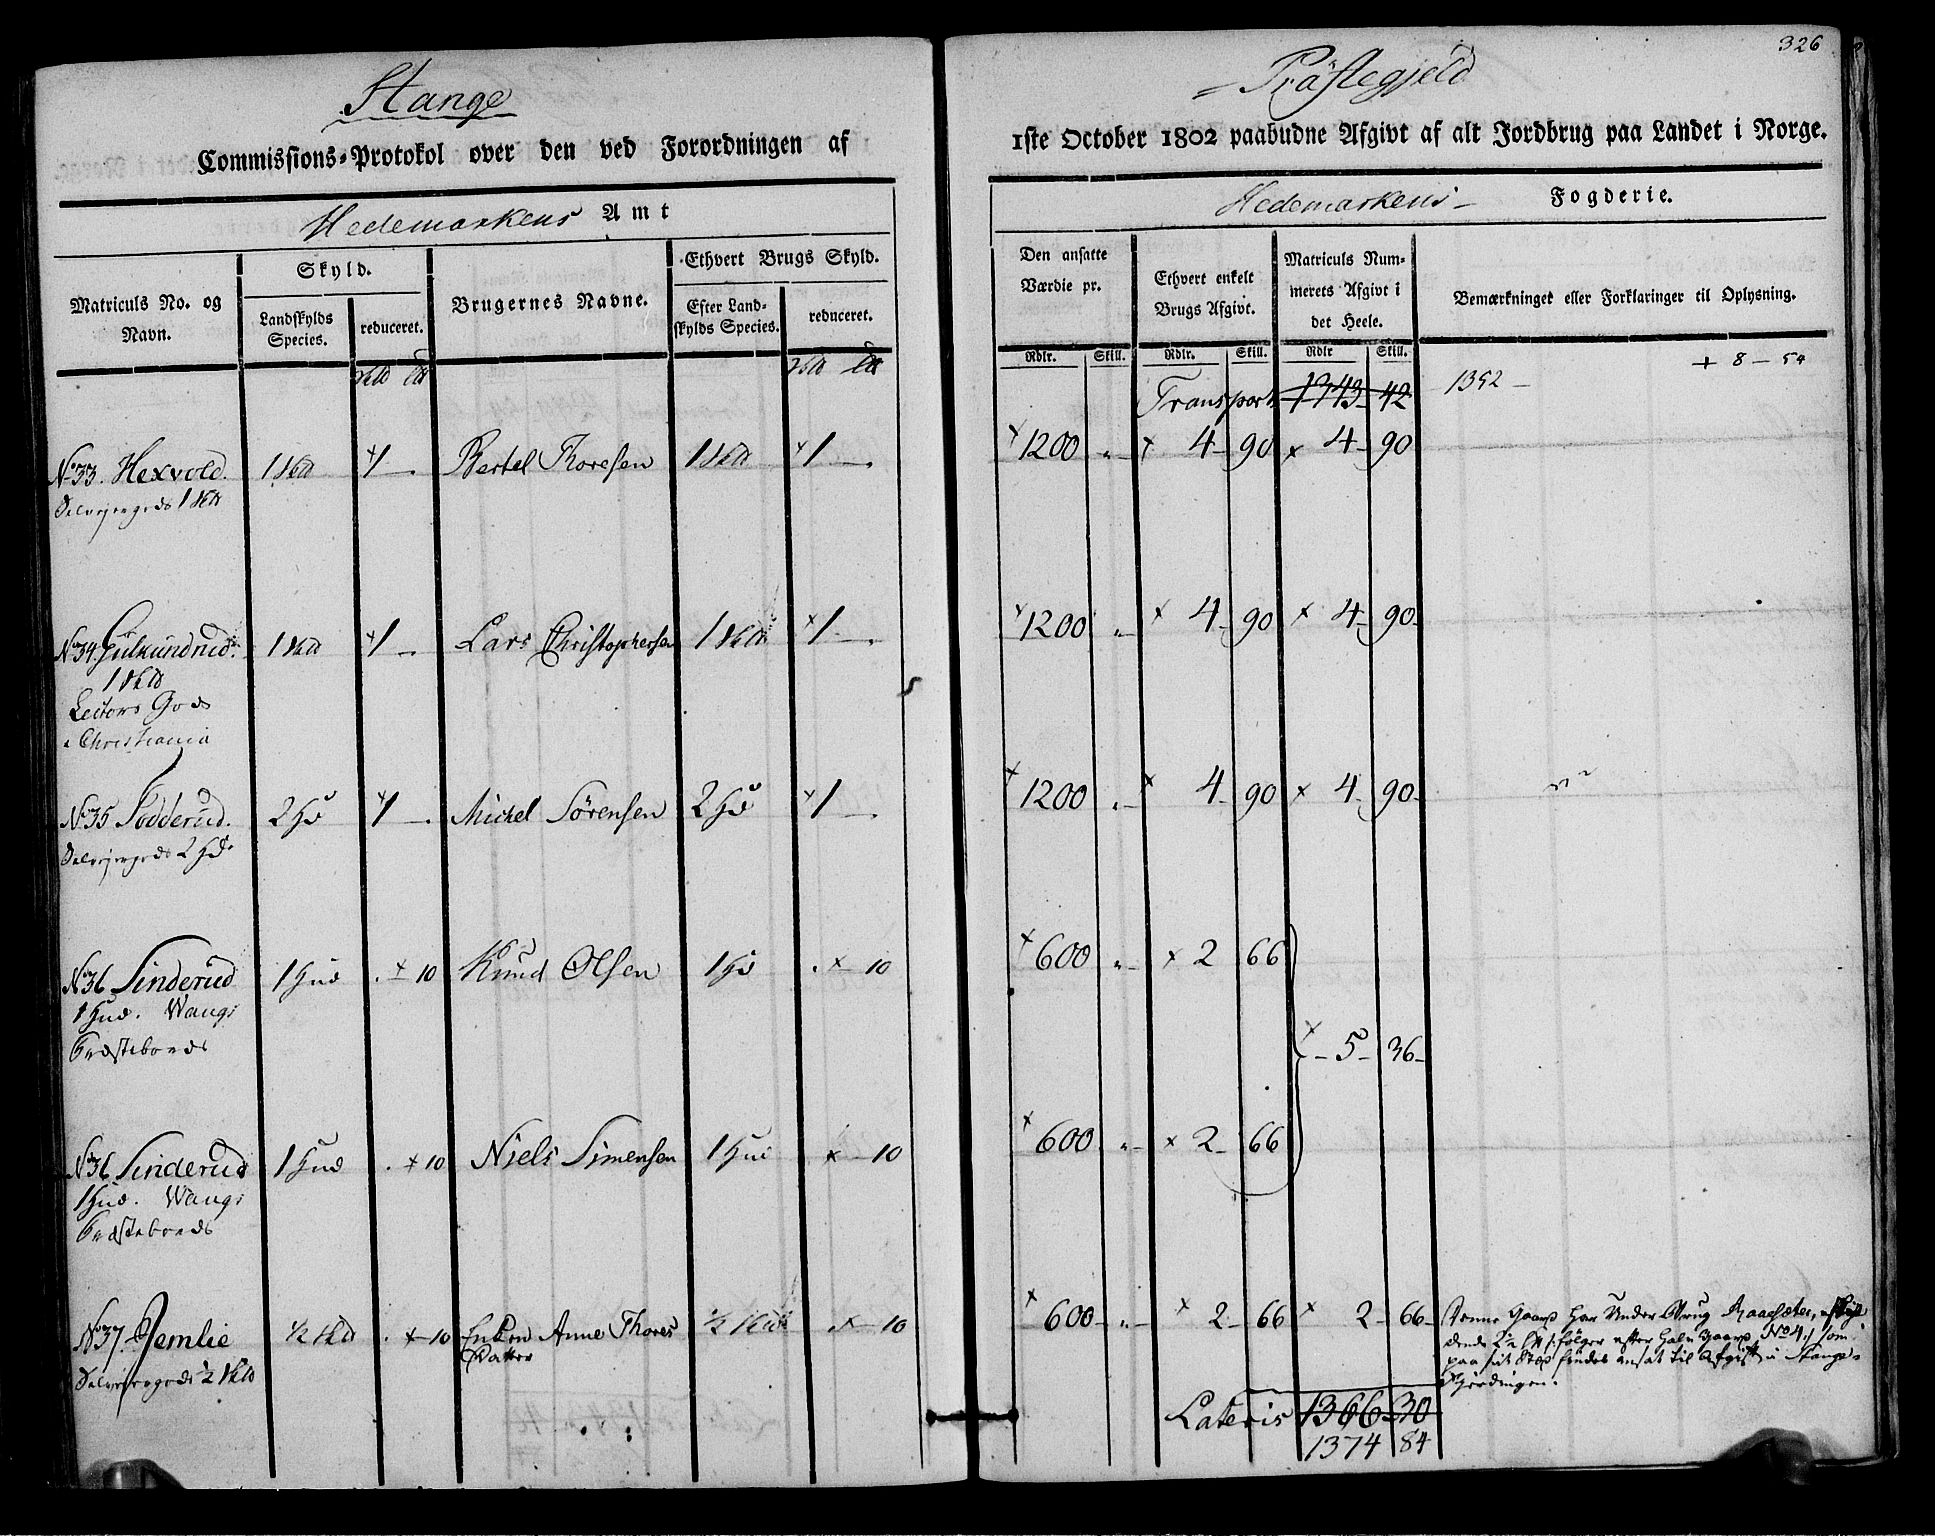 326
Stange
Præstegjeld
Commissions-Protokol over den ved Forordningen af
1ste October 1802 paabudne Afgivt af alt Jordbrug paa Landet i Norge.
Hedemarkens Amt
Hedemarkens Fogderie.
Matriculs No. og Navn.
Skyld.
Landskylds Species.
reduceret.
Brugernes Navne.
Ethvert Brugs Skyld.
Efter Landskylds Species.
reduceret.
Den ansatte Værdie pr.
Ethvert enkelt Brugs Afgivt.
Matriculs Nummerets Afgivt i det Heele.
Bemærkninger eller Forklaringer til Oplysning.
Rdlr. Skill. Rdlr. Skill. Rdlr Skill.
Transport 1343 42 1352 + 8 - 54
No 33. Hexvold. 1 Skd 1 Bertel Thoresen 1 Skd 1 1200 4 90 4 90
Selvejergods 1 Skd
No 34. Gulkundrud. 1 Skd 1 Lars Christophersen 1 Skd 1 1200 4 90 4 90
1 Skd
Lectors Gods
i Christiania
No 35 Sodderud. 2 Hd 1 Michel Sörensen 2 Hd 1 1200 4 90 4 90
Selvejergods 2 Hd.
No 36 Sinderud 1 Hud 10 Knud Olsen 1 Hd 10 600 2 66
1 Hud. Wangs
Præstebords
5 36
No 36 Sinderud 1 Hud 10 Niels Simensen 1 Hud 10 600 2 66
1 Hud. Wangs
Præstebords
No 37. Jemlie 1/2 Skd 10 Enken Anne Thores 1/2 Skd 10 600 2 66 2 66
Datter
Selvejergods 1/2 Skd
Denne Gaard har Under Brug
No 4
paa sit Sted findes ansat til Afgift i Stange
Fjerdingen.
Lateris 1366 30
1374 84